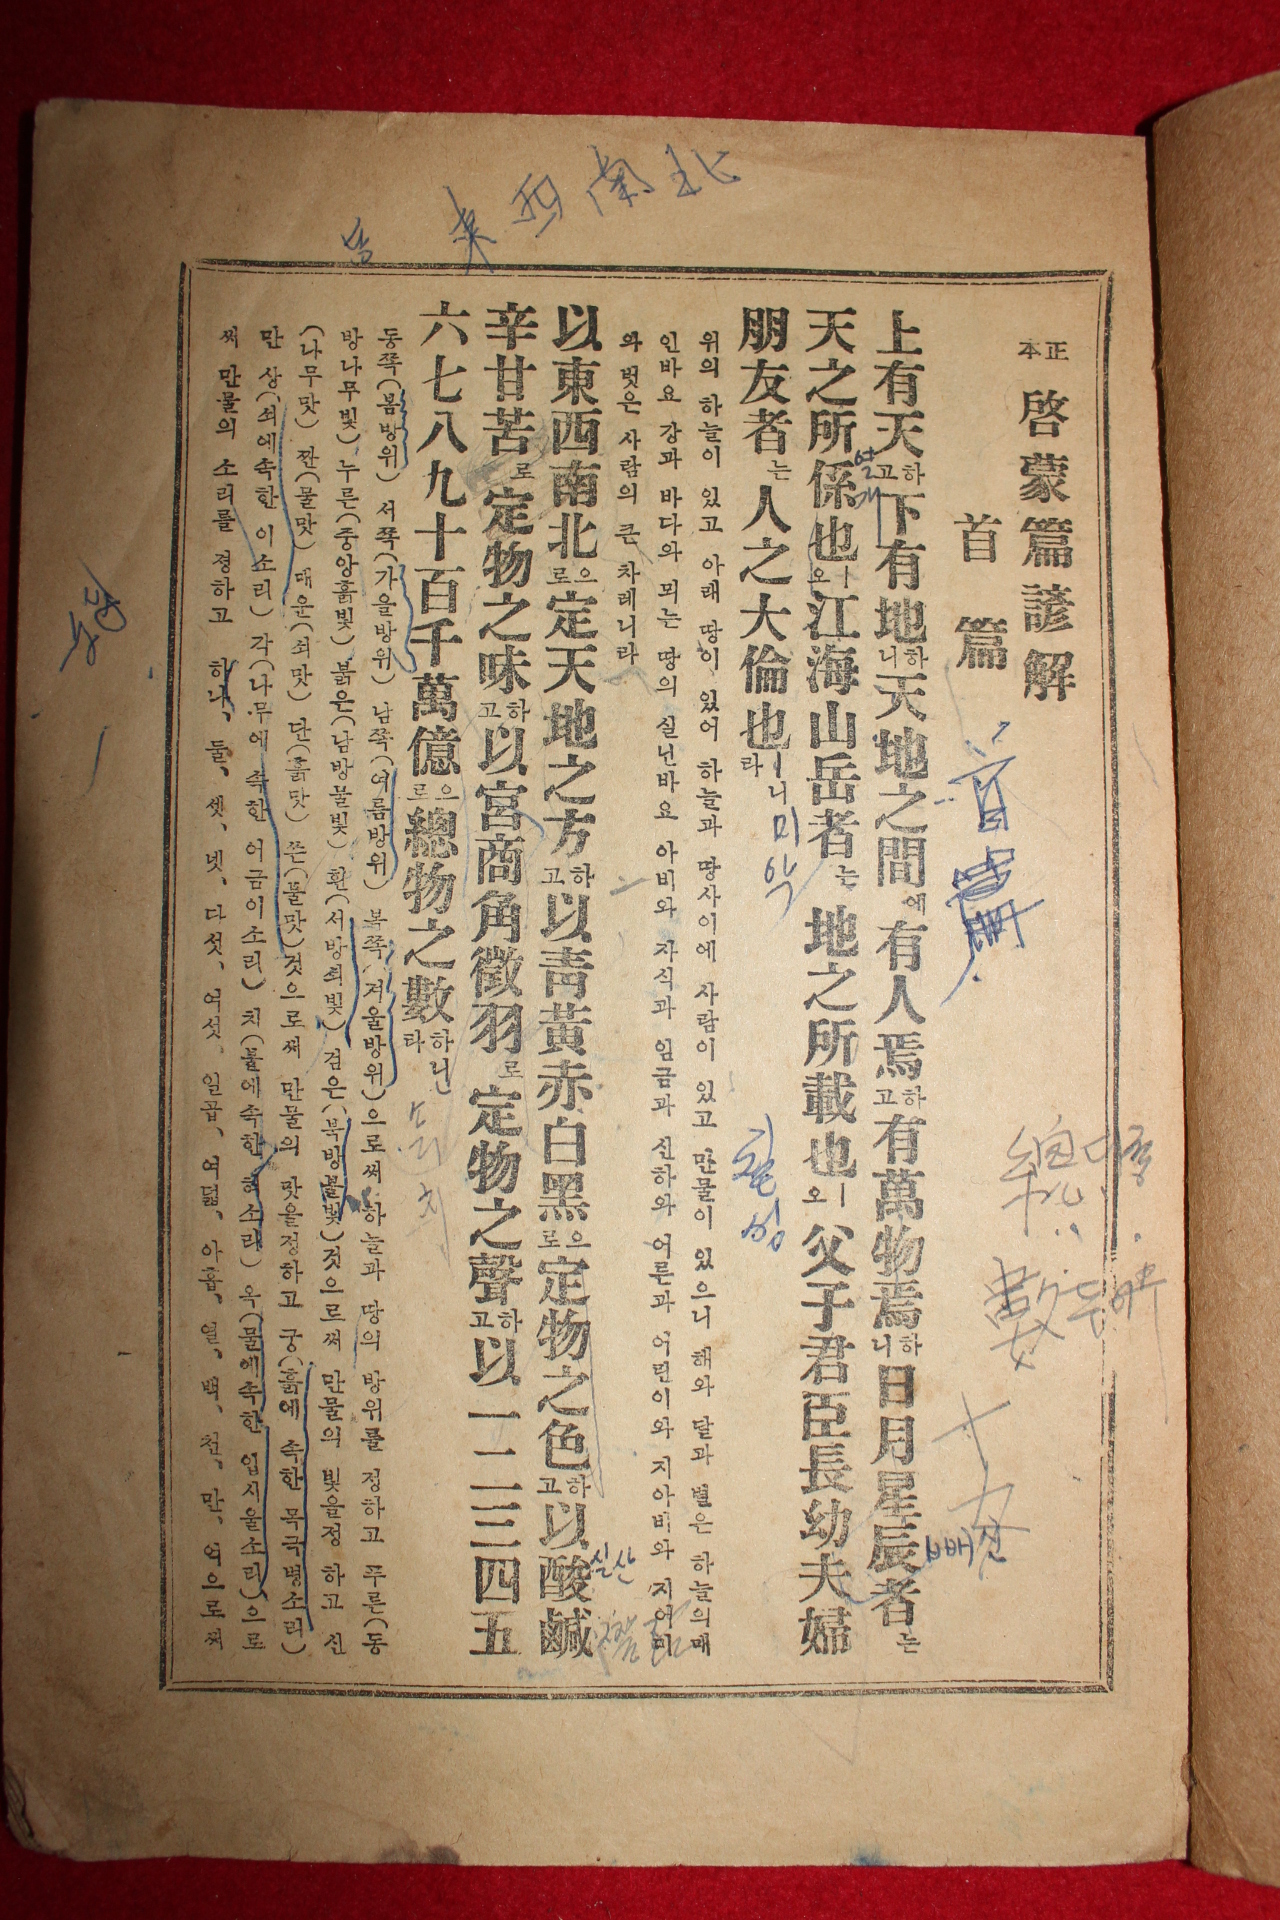 東西南北
正本 啓蒙篇諺解
首篇
上有天하고下有地하니天地之間에有人焉하고有萬物焉하니日月星辰者는
天之所係也ㅣ오江海山岳者는地之所載也ㅣ오父子君臣長幼夫婦
朋友者는人之大倫也ㅣ니라
위의 하늘이 있고 아래 땅이 있어 하늘과 땅사이에 사람이 있고 만물이 있으니 해와 달과 별은 하늘의매
인바요 강과 바다와 뫼는 땅의 실닌바요 아비와 자식과 임금과 신하와 어른과 어린이와 지아비와 지어미
와 벗은 사람의 큰 차례니라
以東西南北으로定天地之方하고以靑黃赤白黑으로定物之色하고以酸鹹
辛甘苦로定物之味하고以宮商角徵羽로定物之聲하고以一二三四五
六七八九十百千萬億으로總物之數하나니라
동쪽(봄방위) 서쪽(가을방위) 남쪽(여름방위) 북쪽(겨울방위)으로써 하늘과 땅의 방위를 정하고 푸른(동
방나무빛) 누른(중앙흙빛) 붉은(남방불빛) 흰(서방쇠빛) 검은(북방물빛)것으로써 만물의 빛을정 하고 신
(나무맛) 짠(물맛) 매운(쇠맛) 단(흙맛) 쓴(불맛)것으로써 만물의 맛을정하고 궁(흙에 속한 목국병소리)
만 상(쇠에속한 이소리) 각(나무에 속한 어금이소리) 치(불에속한 혀소리) 우(물에속한 입시울소리)으로
써 만물의 소리를 정하고 하나、둘、셋、넷、다섯、여섯、일곱、여덟、아홉、열、백、천、만、억으로써
미약
칠성
실산